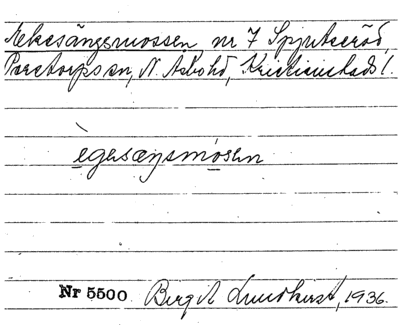 Ekesångsmossen, nr 7 Spjutseröd,
Perstorps sn, N. Åsbo hd, Kristianstads l.
ègesæŋsmosen
Nr 5500 Birgit Lundkvist, 1936.